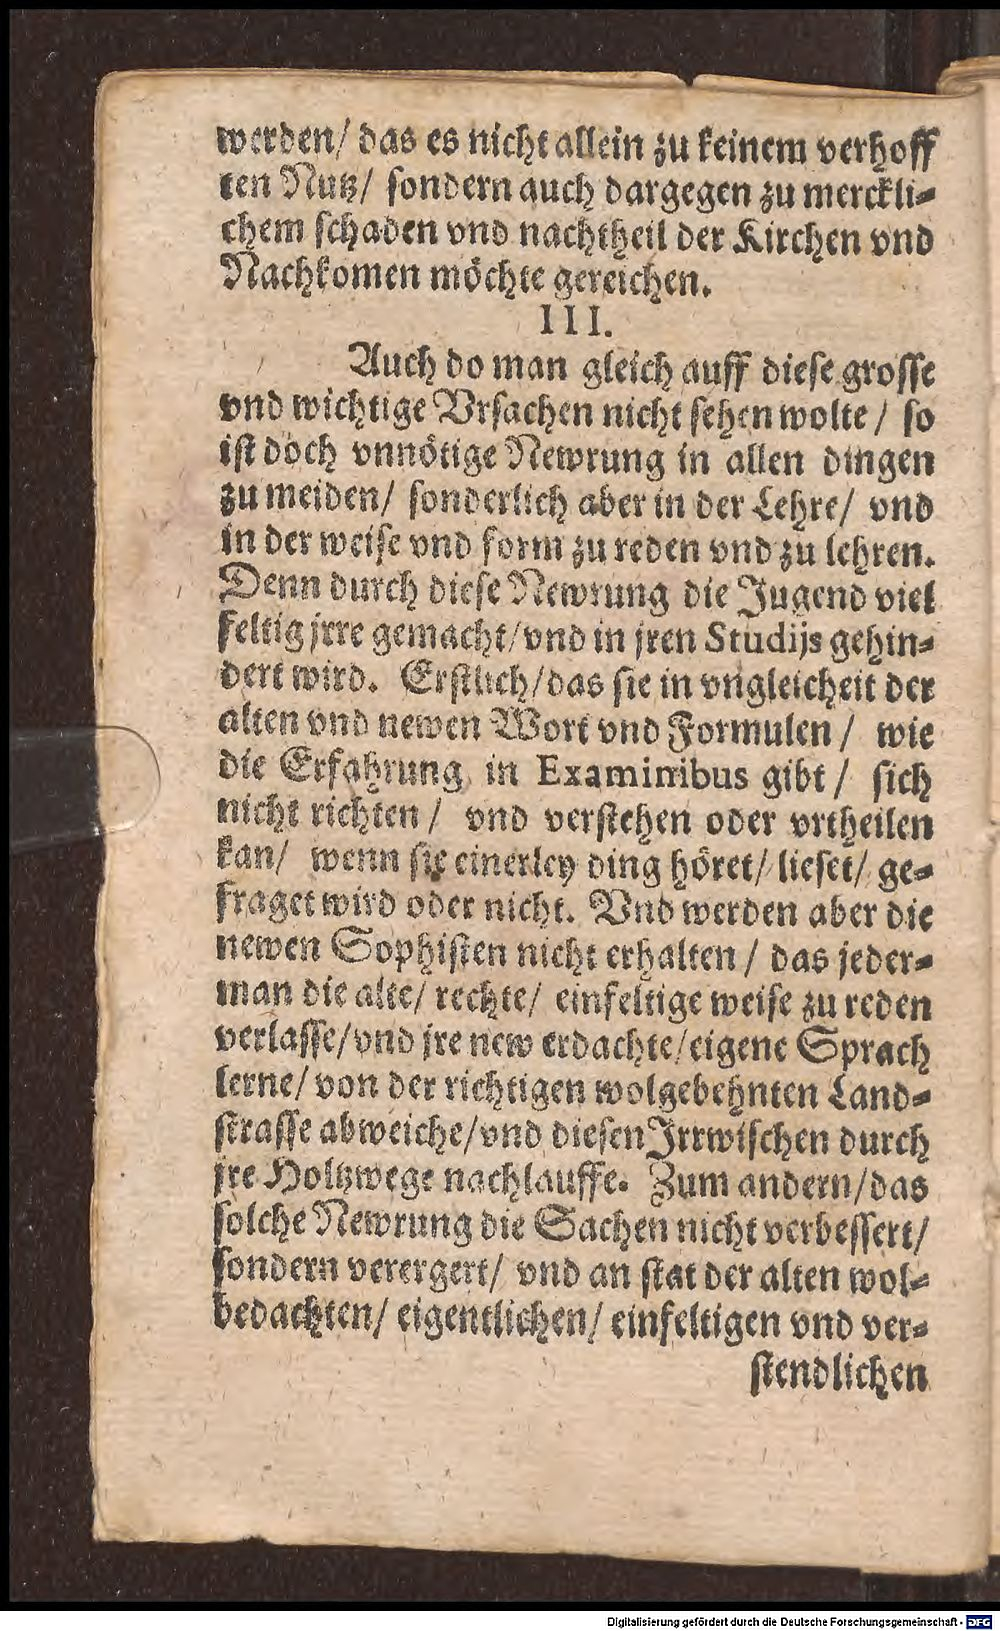 werden/ das es nicht allein zu keinem verhoff
ten Nutz/ sondern auch dargegen zu merckli⸗
chem schaden vnd nachtheil der Kirchen vnd
Nachkomen möchte gereichen.
III.
Auch do man gleich auff diese grosse
vnd wichtige Vrsachen nicht sehen wolte / so
ist doch vnnötige Newrung in allen dingen
zu meiden/ sonderlich aber in der Lehre/ vnd
in der weise vnd form zu reden vnd zu lehren.
Denn durch diese Newrung die Jugend viel
feltig jrre gemacht/ vnd in jren Studijs gehin⸗
dert wird. Erstlich/ das sie in vngleicheit der
alten vnd newen Wort vnd Formulen / wie
die Erfahrung in Examinibus gibt / sich
nicht richten / vnd verstehen oder vrtheilen
kan/ wenn sie einerley ding höret/ lieset/ ge⸗
fraget wird oder nicht. Vnd werden aber die
newen Sophisten nicht erhalten / das jeder⸗
man die alte/ rechte/ einfeltige weise zu reden
verlasse/ vnd jre new erdachte/ eigene Sprach
lerne/ von der richtigen wolgebehnten Land⸗
strasse abweiche/ vnd diesen Jrrwischen durch
jre Holtzwege nachlauffe. Zum andern/ das
solche Newrung die Sachen nicht verbessert/
sondern verergert/ vnd an stat der alten wol⸗
bedachten/ eigentlichen/ einfeltigen vnd ver⸗
stendlichen
Digitalisierung gefördert durch die Deutsche Forschungsgemeinschaft - DFG